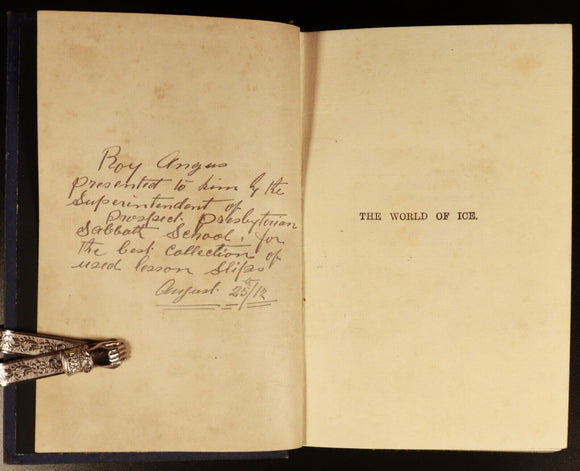 Roy Angus
presented to him by the
Superintendent of
Prospect Presbyterian
Sabbath School, for
the best collection of
used lesson slips
August 25th/12
THE WORLD OF ICE.